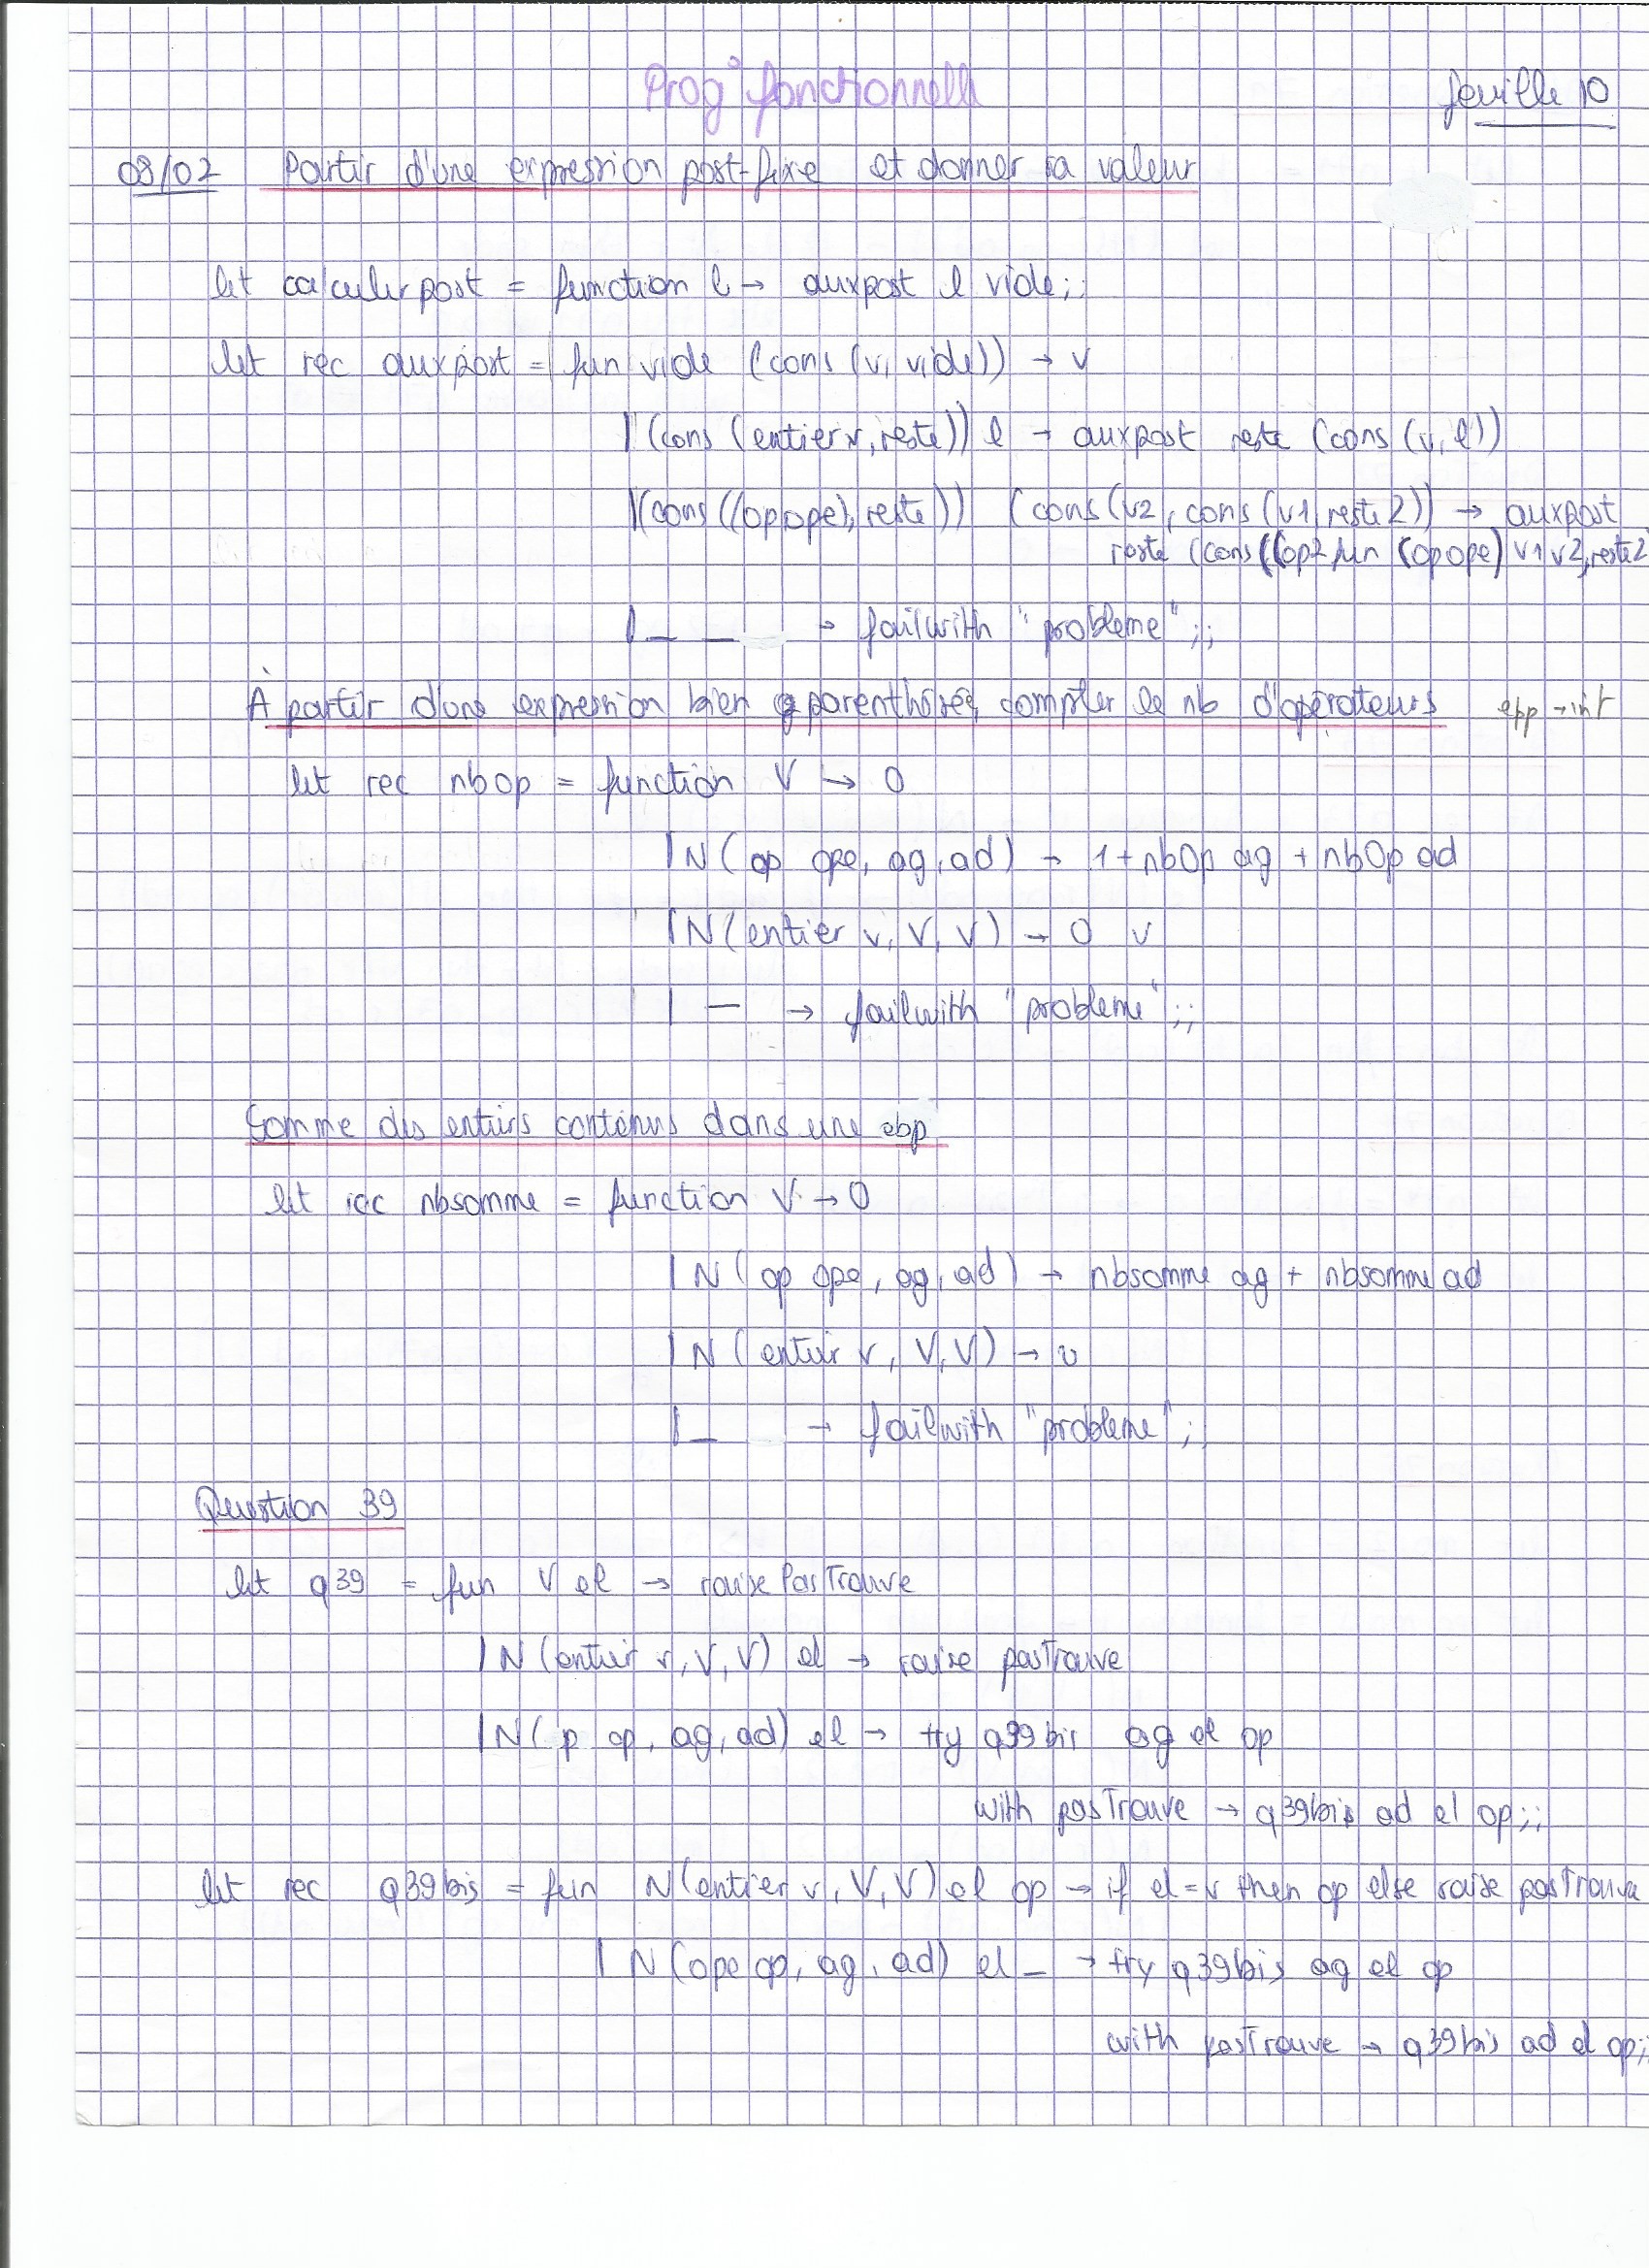 Prog° fonctionnelle
feuille 10
08/02 Partir d'une expression post-fixe et donner sa valeur
let calculerpost = function l → auxpost l vide;;
let rec auxpost = fun vide (cons (v, vide)) → v
|(cons (entier v, reste)) l → auxpost reste (cons (v, l))
|(cons ((op ope), reste)) (cons (v2, cons (v1, reste2)) → auxpost
reste (cons ((op2fun (op ope) v1 v2, reste2
| _ _ → failwith "probleme";;
À partir d'une expression bien parenthésée, compter le nb d'opérateurs epp → int
let rec nbop = function V → 0
| N( op ope, ag, ad) → 1 + nbOp ag + nbOp ad
| N(entier v, V, V) → 0 v
| _ → failwith "probleme";;
Somme des entiers contenus dans une ebp
let rec nbsomme = function V → 0
| N( op ope, ag, ad) → nbsomme ag + nbsomme ad
| N (entier v, V, V) → v
| _ → failwith "probleme";
Question 39
let q39 = fun V el → raise PasTrouve
| N (entier v, V, V) el → raise pasTrouve
| N( p op, ag, ad) el → try q39bis ag el op
with pasTrouve → q39bis ad el op;;
let rec q39bis = fun N(entier v, V, V) el op → if el=v then op else raise pasTrouve
| N (ope op, ag, ad) el _ → try q39bis ag el op
with pasTrouve → q39bis ad el op;